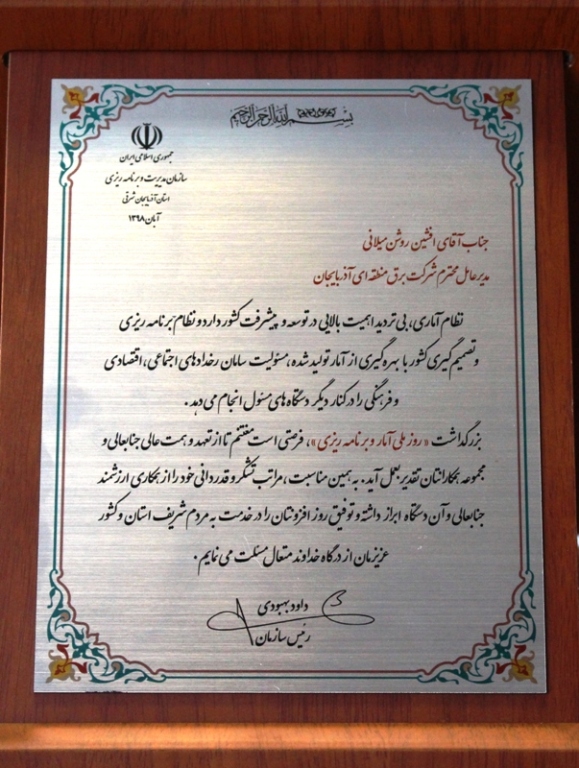 بسم الله الرحمن الرحیم
جمهوری اسلامی ایران
سازمان مدیریت و برنامه ریزی
استان آذربایجان شرقی
آبان ۱۳۹۸
جناب آقای افشین روشن میلانی
مدیرعامل محترم شرکت برق منطقه ای آذربایجان
نظام آماری، بی تردید اهمیت بالایی در توسعه و پیشرفت کشور دارد و نظام برنامه ریزی
و تصمیم گیری کشور با بهره گیری از آمار تولید شده، مسئولیت سامان رخدادهای اجتماعی، اقتصادی
و فرهنگی را در کنار دیگر دستگاه های مسئول انجام می دهد.
بزرگداشت «روز ملی آمار و برنامه ریزی»، فرصتی است مغتنم تا از تعهد و همت عالی جنابعالی و
مجموعه همکارانتان تقدیر بعمل آید. به همین مناسبت، مراتب تشکر و قدردانی خود را از همکاری ارزشمند
جنابعالی و آن دستگاه ابراز داشته و توفیق روز افزونتان را در خدمت به مردم شریف استان و کشور
عزیزمان از درگاه خداوند متعال مسئلت می نمایم.
داود بهبودی
رئیس سازمان